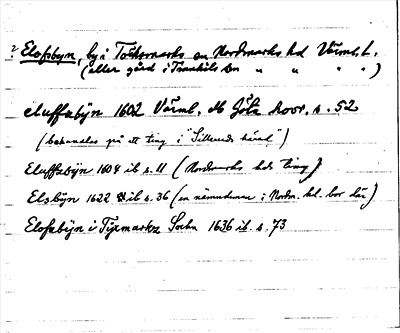 ? Elofsbyn, by i Töcksmarks sn Nordmarks hd Värml. l.
(eller gård i Trankils sn " " " ")
eluffabÿn 1602 Värml. db Göta hovr. s. 52
(behandlas på ett ting i "Silleruds härad")
Eluffabÿn 1604 ib s. 11 (Nordmarks hds ting)
Elsbÿn 1622 ib s. 36 (en nämndeman i Nordm. hd. bor där)
Elofzbÿn i Tÿxmarkz Sochn 1636 ib. s. 73